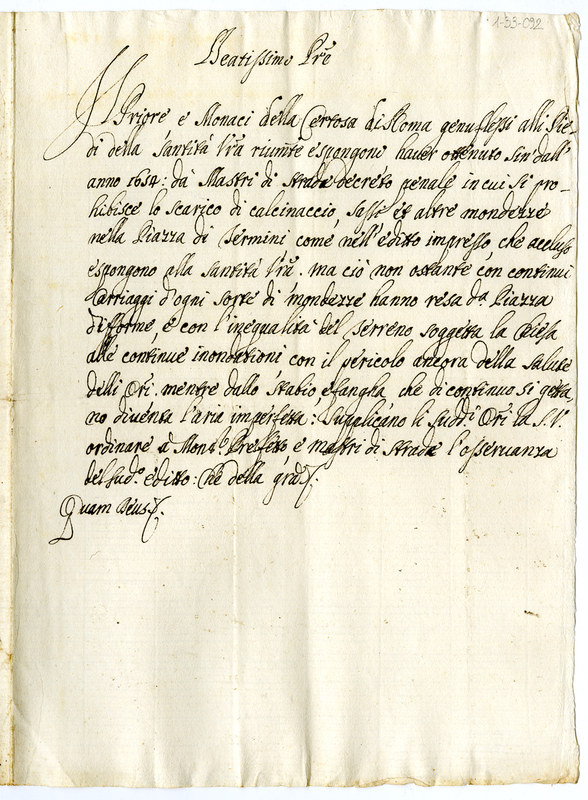 1-53-092
Beatissimo Prē
Il Priore e Monaci della Certosa di Roma genuflessi alli Pie
di della Santità Vrā riuṁte espongono haver ottenuto sin dall'
anno 1654: dà Mastri di strada decreto penale in cui si pro-
hibisce lo scarico di calcinaccio, sassi et altre mondezze
nella Piazza di Termini come nell'editto impresso, che accluso
espongono alla Santità Vrā. ma ciò non ostante con continui
Carriaggi d'ogni sorte di mondezze hanno resa dᵃ Piazza
difforme, e con l'inegualità del terreno soggetta la Chiesa
alle continue inondationi con il pericolo ancora della salute
delli Ori. mentre dallo stabio, e fangha, che di continuo si getta
no diventa l'aria imperfetta: Supplicano li sudᵈⁱ Ori la S.V.
ordinare à Monsʳ Prefetto e mastri di strada l'osservanza
del sudᵒ editto: Che della graz.
Quam Deus.